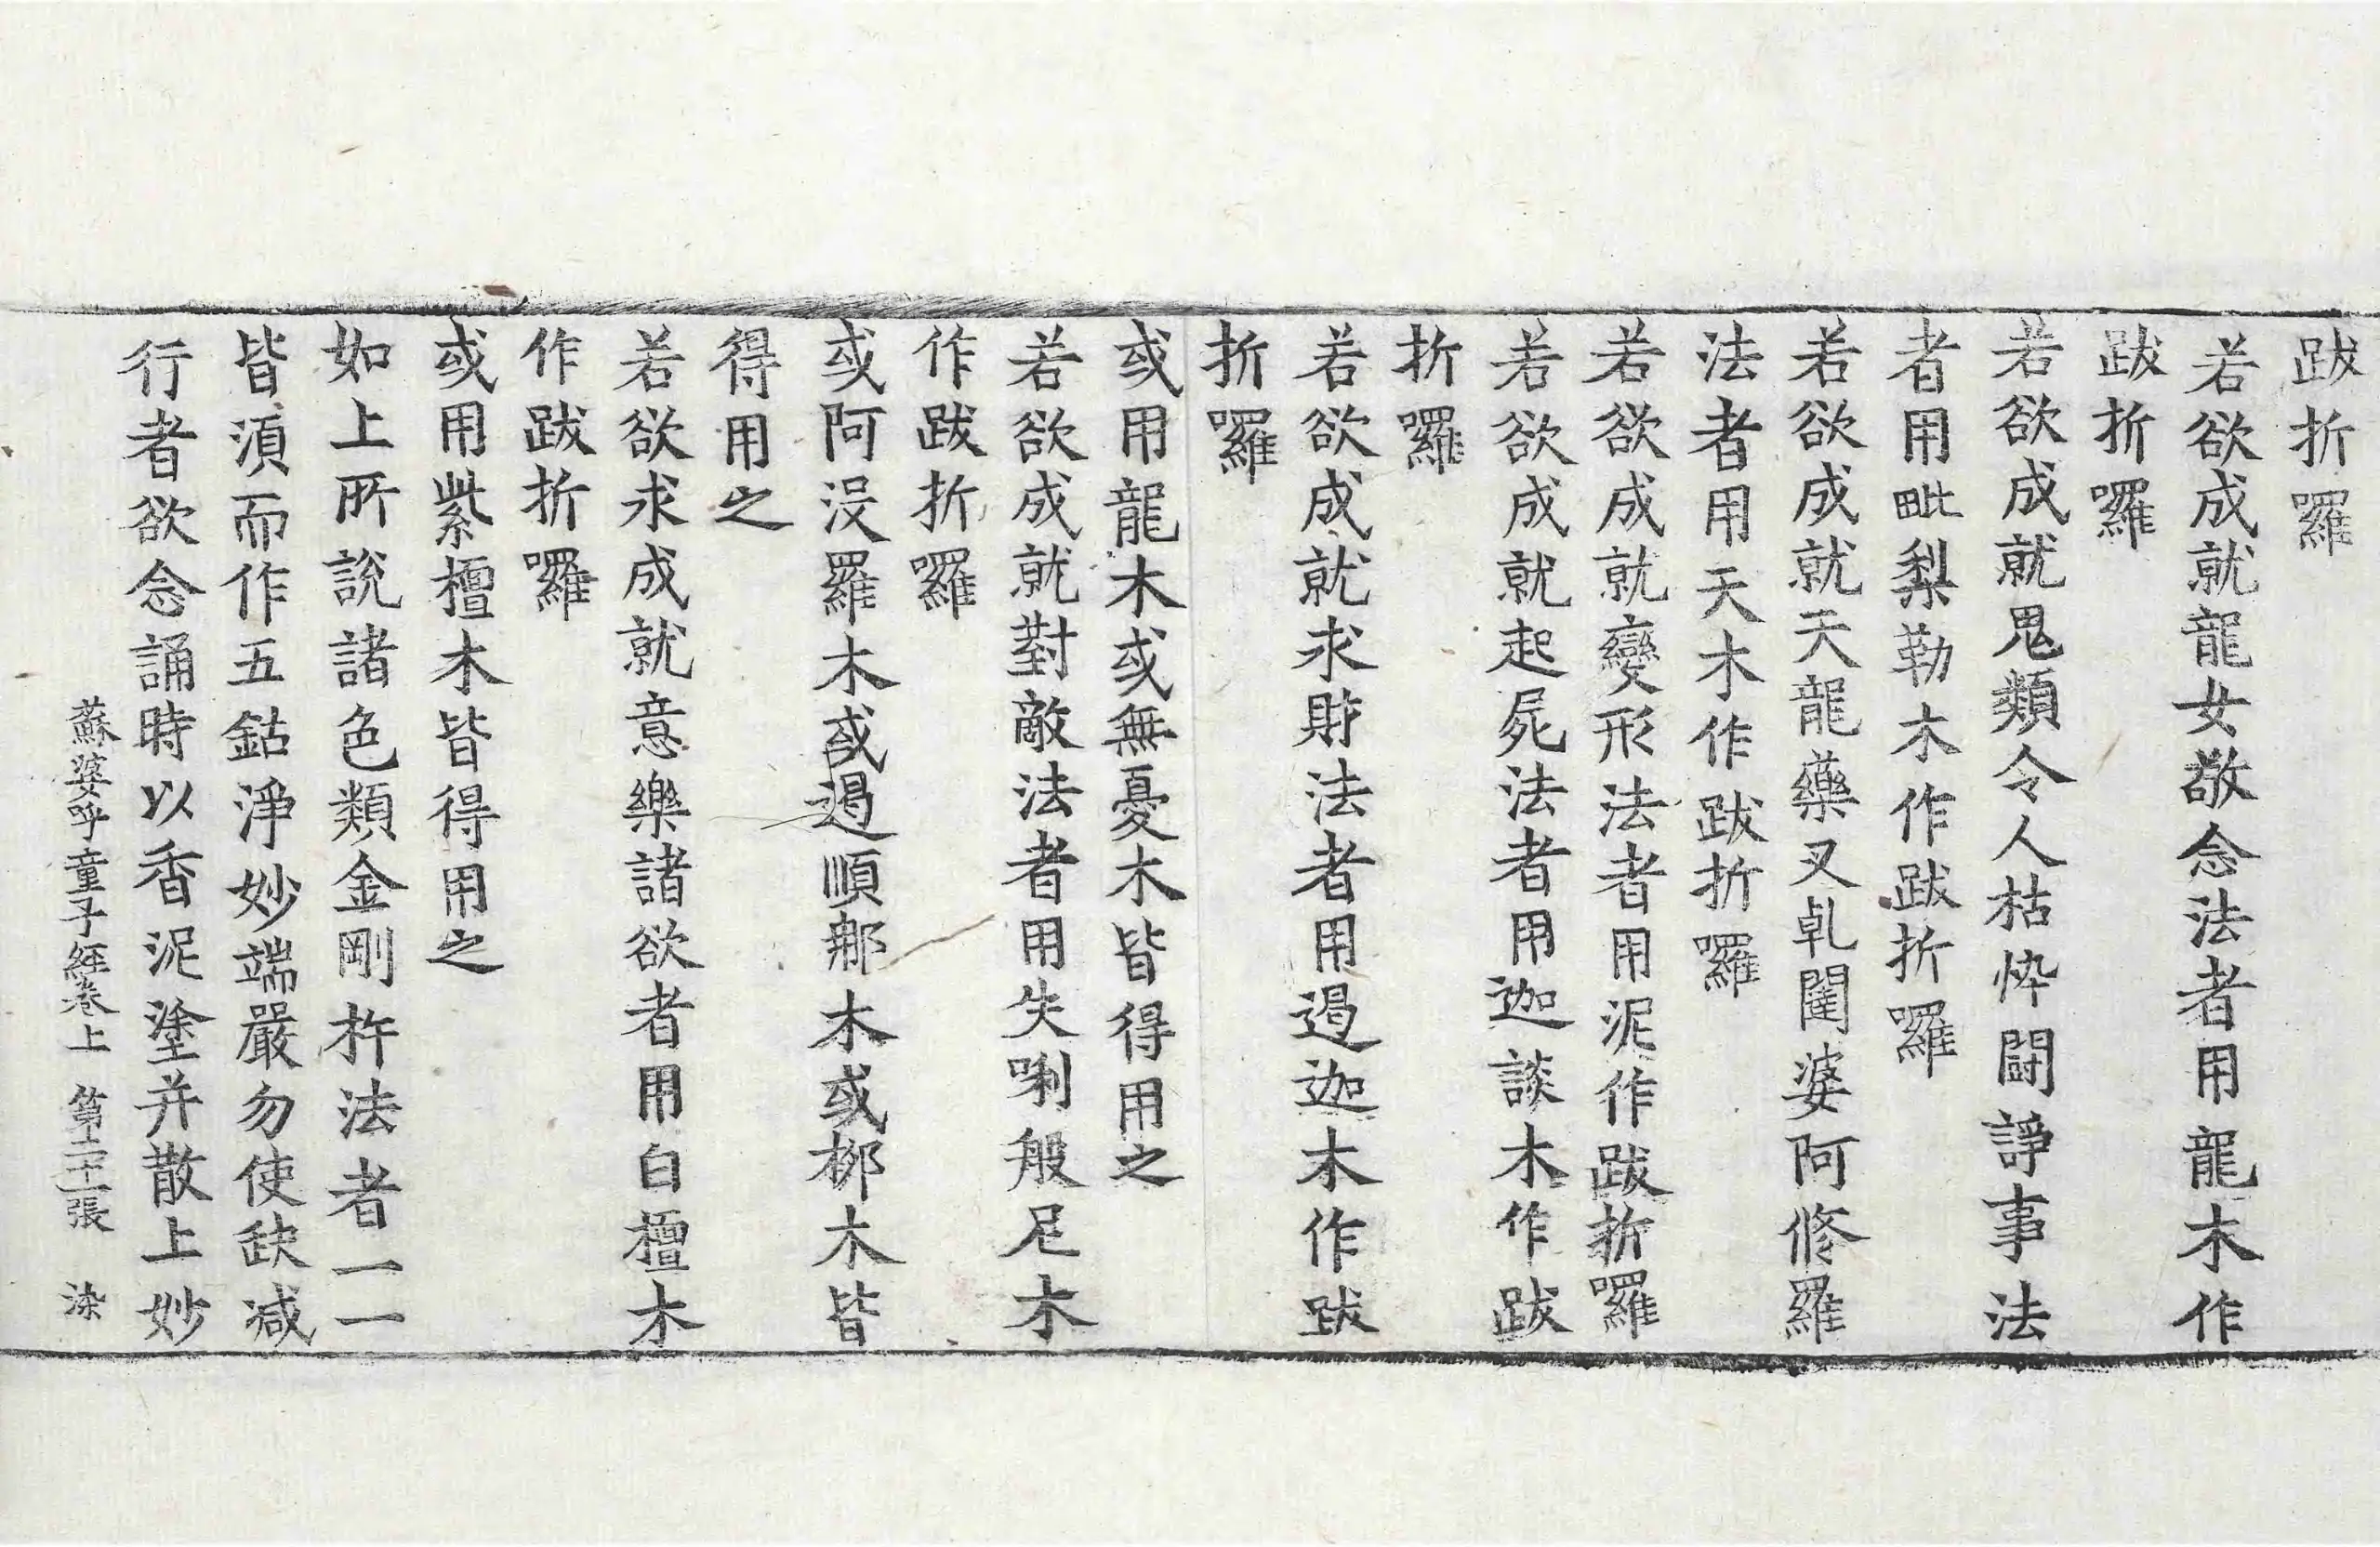 跋折囉
若欲成就龍女敬念法者用龍木作
跋折囉
若欲成就鬼類令人枯悴鬪諍事法
者用毗梨勒木作跋折囉
若欲成就天龍藥叉乹闥婆阿修羅
法者用天木作跋折囉
若欲成就變形法者用泥作跋折囉
若欲成就起屍法者用迦談木作跋
折囉
若欲成就求財法者用遏迦木作跋
折囉
或用龍木或無憂木皆得用之
若欲成就對敵法者用失唎般尼木
作跋折囉
或阿没羅木或遏順那木或栁木皆
得用之
若欲求成就意樂諸欲者用白檀木
作跋折囉
或用紫檀木皆得用之
如上所說諸色類金剛杵法者一一
皆湏而作五鈷淨妙端嚴勿使缺减
行者欲念誦時以香泥塗并散上妙
蘇婆呼童子經卷上 第二十張 染